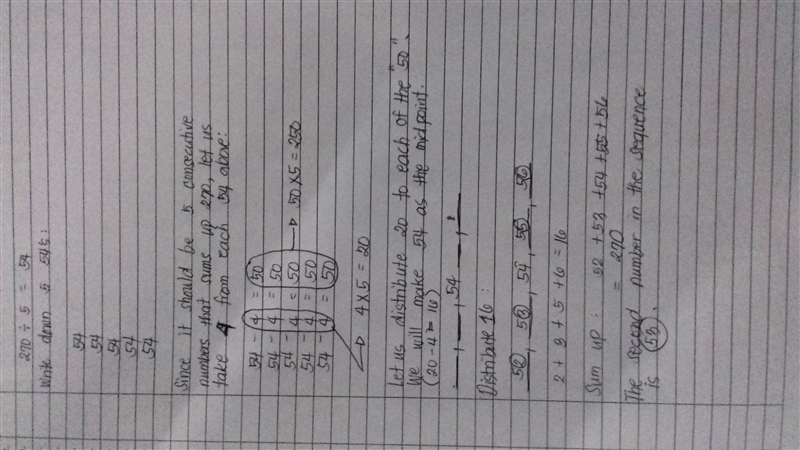 270 ÷ 5 = 54
Write down 5 54s:
54
54
54
54
54
Since it should be 5 consecutive
numbers that sums up 270, let us
take 4 from each 54 above:
54 - 4 = 50
54 - 4 = 50
54 - 4 = 50 → 50 x 5 = 250
54 - 4 = 50
54 - 4 = 50
→ 4 x 5 = 20
Let us distribute 20 to each of the "50".
We will make 54 as the midpoint.
(20 - 4 = 16)
__, __, 54, __, __
Distribute 16:
52, 53, 54, 55, 56
2 + 3 + 5 + 6 = 16
Sum up: 52 + 53 + 54 + 55 + 56
= 270
The second number in the sequence
is 53.